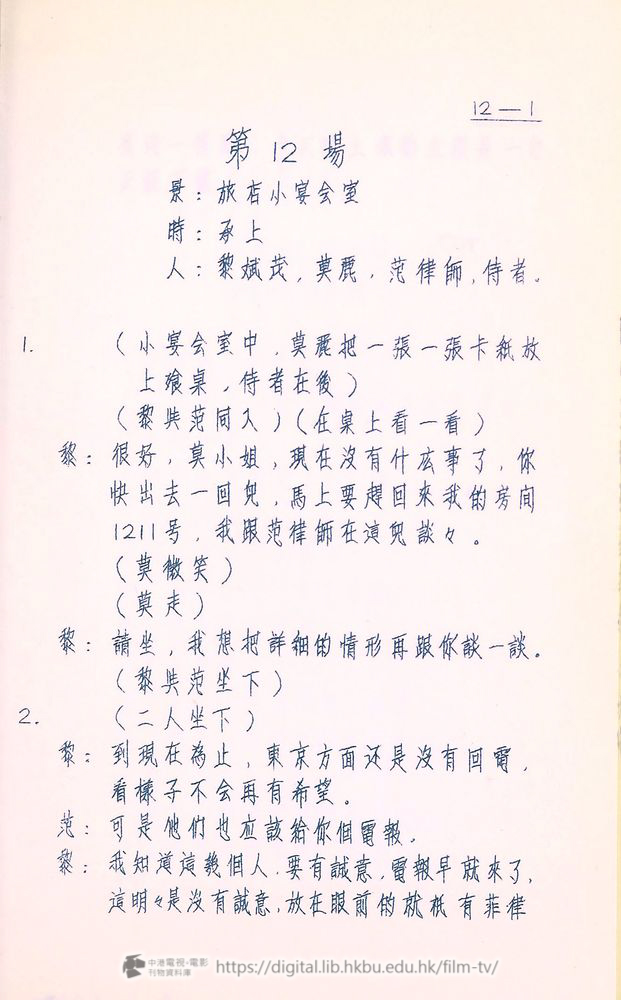 12—1
第 12 場
景：旅店小宴会室
時：承上
人：黎斌茂，莫麗，范律師，侍者。
1. （小宴会室中，莫麗把一張一張卡紙放
上飱桌，侍者在後）
（黎與范同入）（在桌上看一看）
黎：很好，莫小姐，現在沒有什庅事了，你
快出去一回兒，馬上要趕回來我的房间
1211号，我跟范律師在這兒談々。
（莫微笑）
（莫走）
黎：請坐，我想把詳細的情形再跟你談一談。
（黎與范坐下）
2. （二人坐下）
黎：到現在為止，東京方面还是沒有回電，
看樣子不会再有希望。
范：可是他們也应該給你個電報。
黎：我知道這幾個人，要有誠意，電報早就來了，
這明々是沒有誠意，放在眼前的就衹有菲律
中港電視·電影
刊物資料庫
https://digital.lib.hkbu.edu.hk/film-tv/